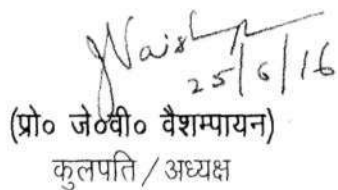 JVaish
25/6/16
(प्रो० जे०वी० वैशम्पायन)
कुलपति / अध्यक्ष